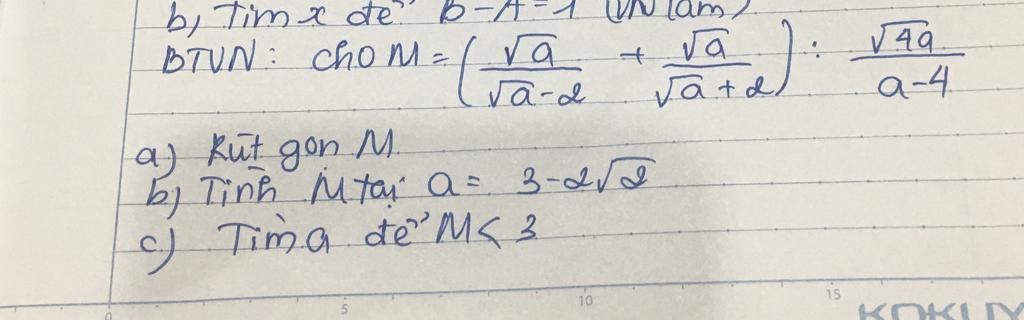 b, Tìm x để B-A=1 (VN làm)
BTVN: Cho M = (√a/(√a-2) + √a/(√a+2)) : √4a/(a-4)
a) Rút gọn M
b) Tính M tại a = 3-2√2
c) Tìm a để M < 3
0 5 10 15
KOKUY